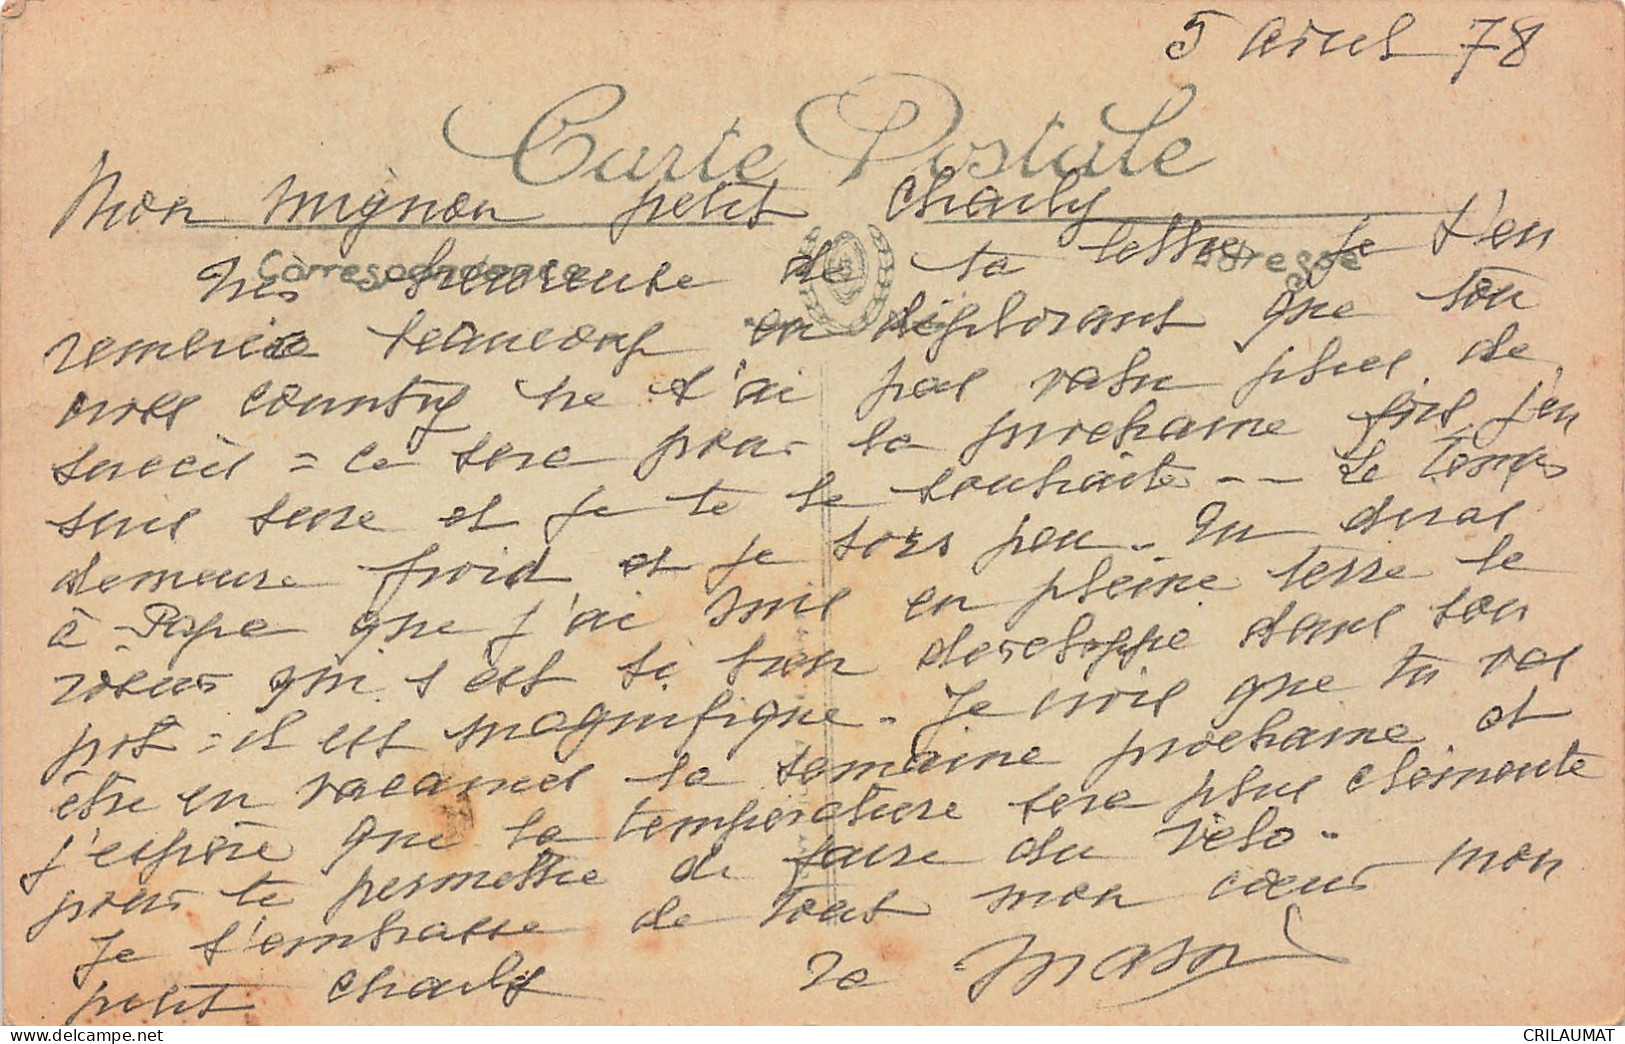 5 avril 78
Carte Postale
Mon mignon petit Charly
Correspondance
Adresse
Très heureuse de ta lettre je t'en
remercie beaucoup en déplorant que ton
cross country ne t'ai pas valu plus de
succès = ce sera pour la prochaine fois j'en
suis sure et je te le souhaite -- Le temps
demeure froid et je sors peu. Tu diras
à Papa que j'ai mis en pleine terre le
qui s'est si bien développé dans son
pot = il est magnifique. Je crois que tu vas
être en vacances la semaine prochaine et
j'espère que la température sera plus clémente
pour te permettre de faire du vélo.
Je t'embrasse de tout mon cœur mon
petit Charly
delcampe.net
CRILAUMAT